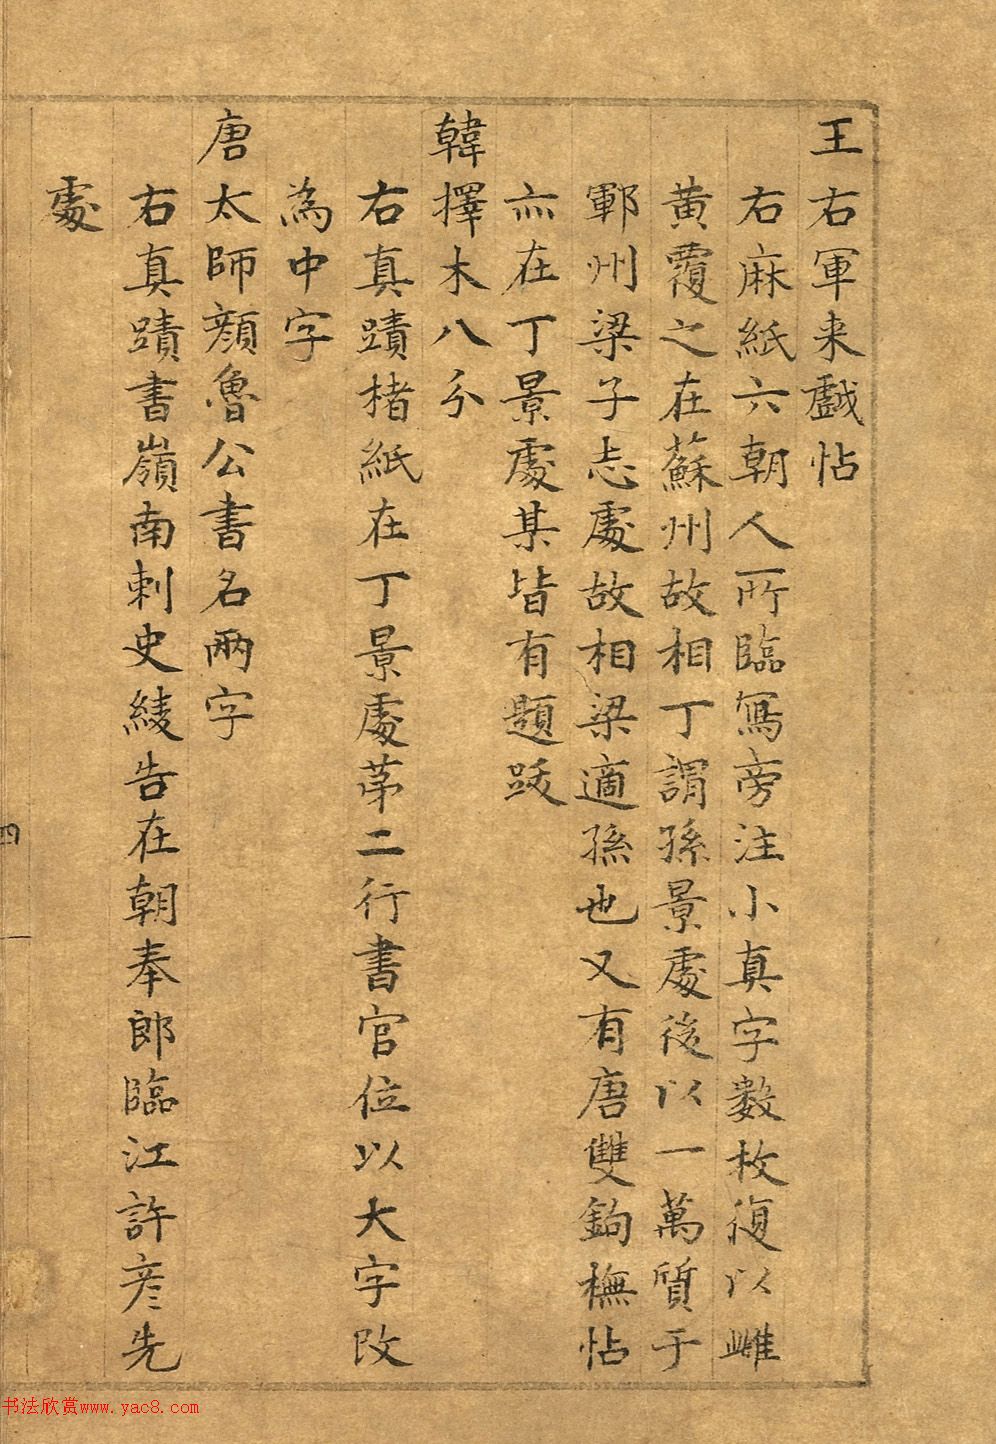 王右軍来戲帖
右麻紙六朝人所臨寫旁注小真字數枚復以雌
黄覆之在蘇州故相丁謂孫景處後以一萬質于
鄆州梁子志處故相梁適孫也又有唐雙鉤橅帖
亦在丁景處某皆有題跋
韓擇木八分
右真蹟楮紙在丁景處苐二行書官位以大字改
為中字
唐太師顔魯公書名兩字
右真蹟書嶺南刺史綾告在朝奉郎臨江許彦先
處
四
书法欣赏www.yac8.com